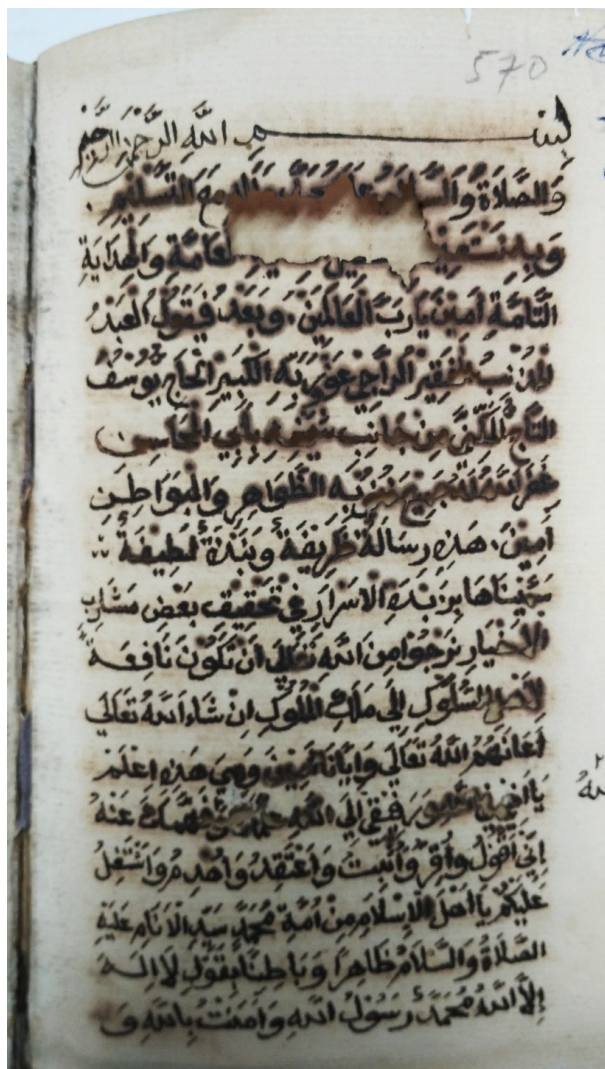 570
بِسْمِ اللَّهِ الرَّحْمَنِ الرَّحِيمِ
وَالصَّلَاةُ وَالسَّلَامُ مَعَ التَّسْلِيمِ
وَبِهِ نَسْتَعِينُ وَالْهِدَايَةِ
التَّامَّةِ آمِينَ يَا رَبَّ الْعَالَمِينَ. وَبَعْدُ فَيَقُولُ الْعَبْدُ
الْمُذْنِبُ الْفَقِيرُ الرَّاجِي عَفْوَ رَبِّهِ الْكَبِيرِ الْحَاجُّ يُوسُفُ
التَّاجُ الْمُكَنَّى مِنْ جَانِبِ شَيْخِهِ بِأَبِي الْمَحَاسِنِ
غَفَرَ اللهُ لَهُ جَمِيعَ ذُنُوبِهِ الظَّوَاهِرِ وَالْبَوَاطِنِ
آمِينَ. هَذِهِ رِسَالَةٌ ظَرِيفَةٌ وَنُبْذَةٌ لَطِيفَةٌ
سَمَّيْنَاهَا بِزُبْدَةِ الْأَسْرَارِ فِي تَحْقِيقِ بَعْضِ مَشَارِبِ
الْأَخْيَارِ نَرْجُوا مِنَ اللهِ تَعَالَى أَنْ تَكُونَ نَافِعَةً
لِأَهْلِ السُّلُوكِ إِلَى مَلِكِ الْمُلُوكِ إِنْ شَاءَ اللهُ تَعَالَى
أَعَانَهُمُ اللهُ تَعَالَى وَإِيَّانَا آمِينَ وَهِيَ هَذِهِ اعْلَمْ
يَا أَخِي إِلَى اللهِ عَنْهُ
إِنِّي أَقُولُ وَأُقِرُّ وَأُثْبِتُ وَأَعْتَقِدُ وَأُشْهِدُ
عَلَيْكُمْ يَا أَهْلَ الْإِسْلَامِ مِنْ أُمَّةِ مُحَمَّدٍ سَيِّدِ الْأَنَامِ عَلَيْهِ
الصَّلَاةُ وَالسَّلَامُ ظَاهِرًا وَبَاطِنًا بِقَوْلِ لَا إِلَهَ
إِلَّا اللهُ مُحَمَّدٌ رَسُولُ اللهِ وَآمَنْتُ بِاللهِ وَ